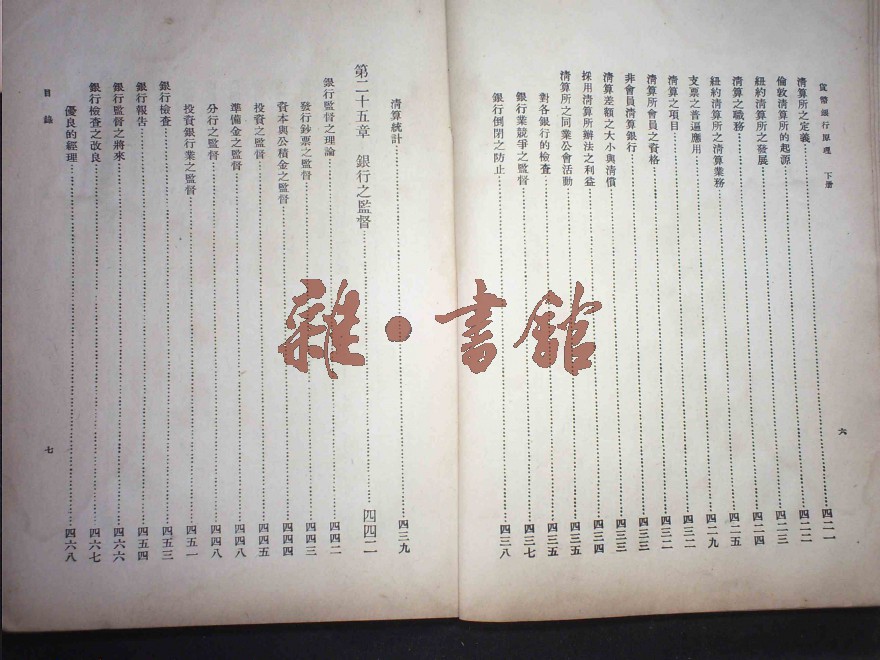 貨幣銀行原理　下册
清算所之定義 四二一
倫敦清算所的起源 四二二
紐約清算所之發展 四二三
清算之職務 四二四
紐約清算所之清算業務 四二五
支票之普遍應用 四二九
清算之項目 四三二
清算所會員之資格 四三二
非會員清算銀行 四三三
清算差額之大小與清償 四三三
採用清算所辦法之利益 四三四
清算所之同業公會活動 四三五
對各銀行的檢查 四三五
銀行業競爭之監督 四三七
銀行倒閉之防止 四三八
六
清算統計 四三九
第二十五章　銀行之監督 四四二
銀行監督之理論 四四二
發行鈔票之監督 四四三
資本與公積金之監督 四四四
投資之監督 四四五
準備金之監督 四四八
分行之監督 四四八
投資銀行業之監督 四五一
銀行檢查 四五三
銀行報告 四五四
銀行監督之將來 四六六
銀行檢查之改良 四六七
優良的經理 四六八
目錄
七
雜·書館